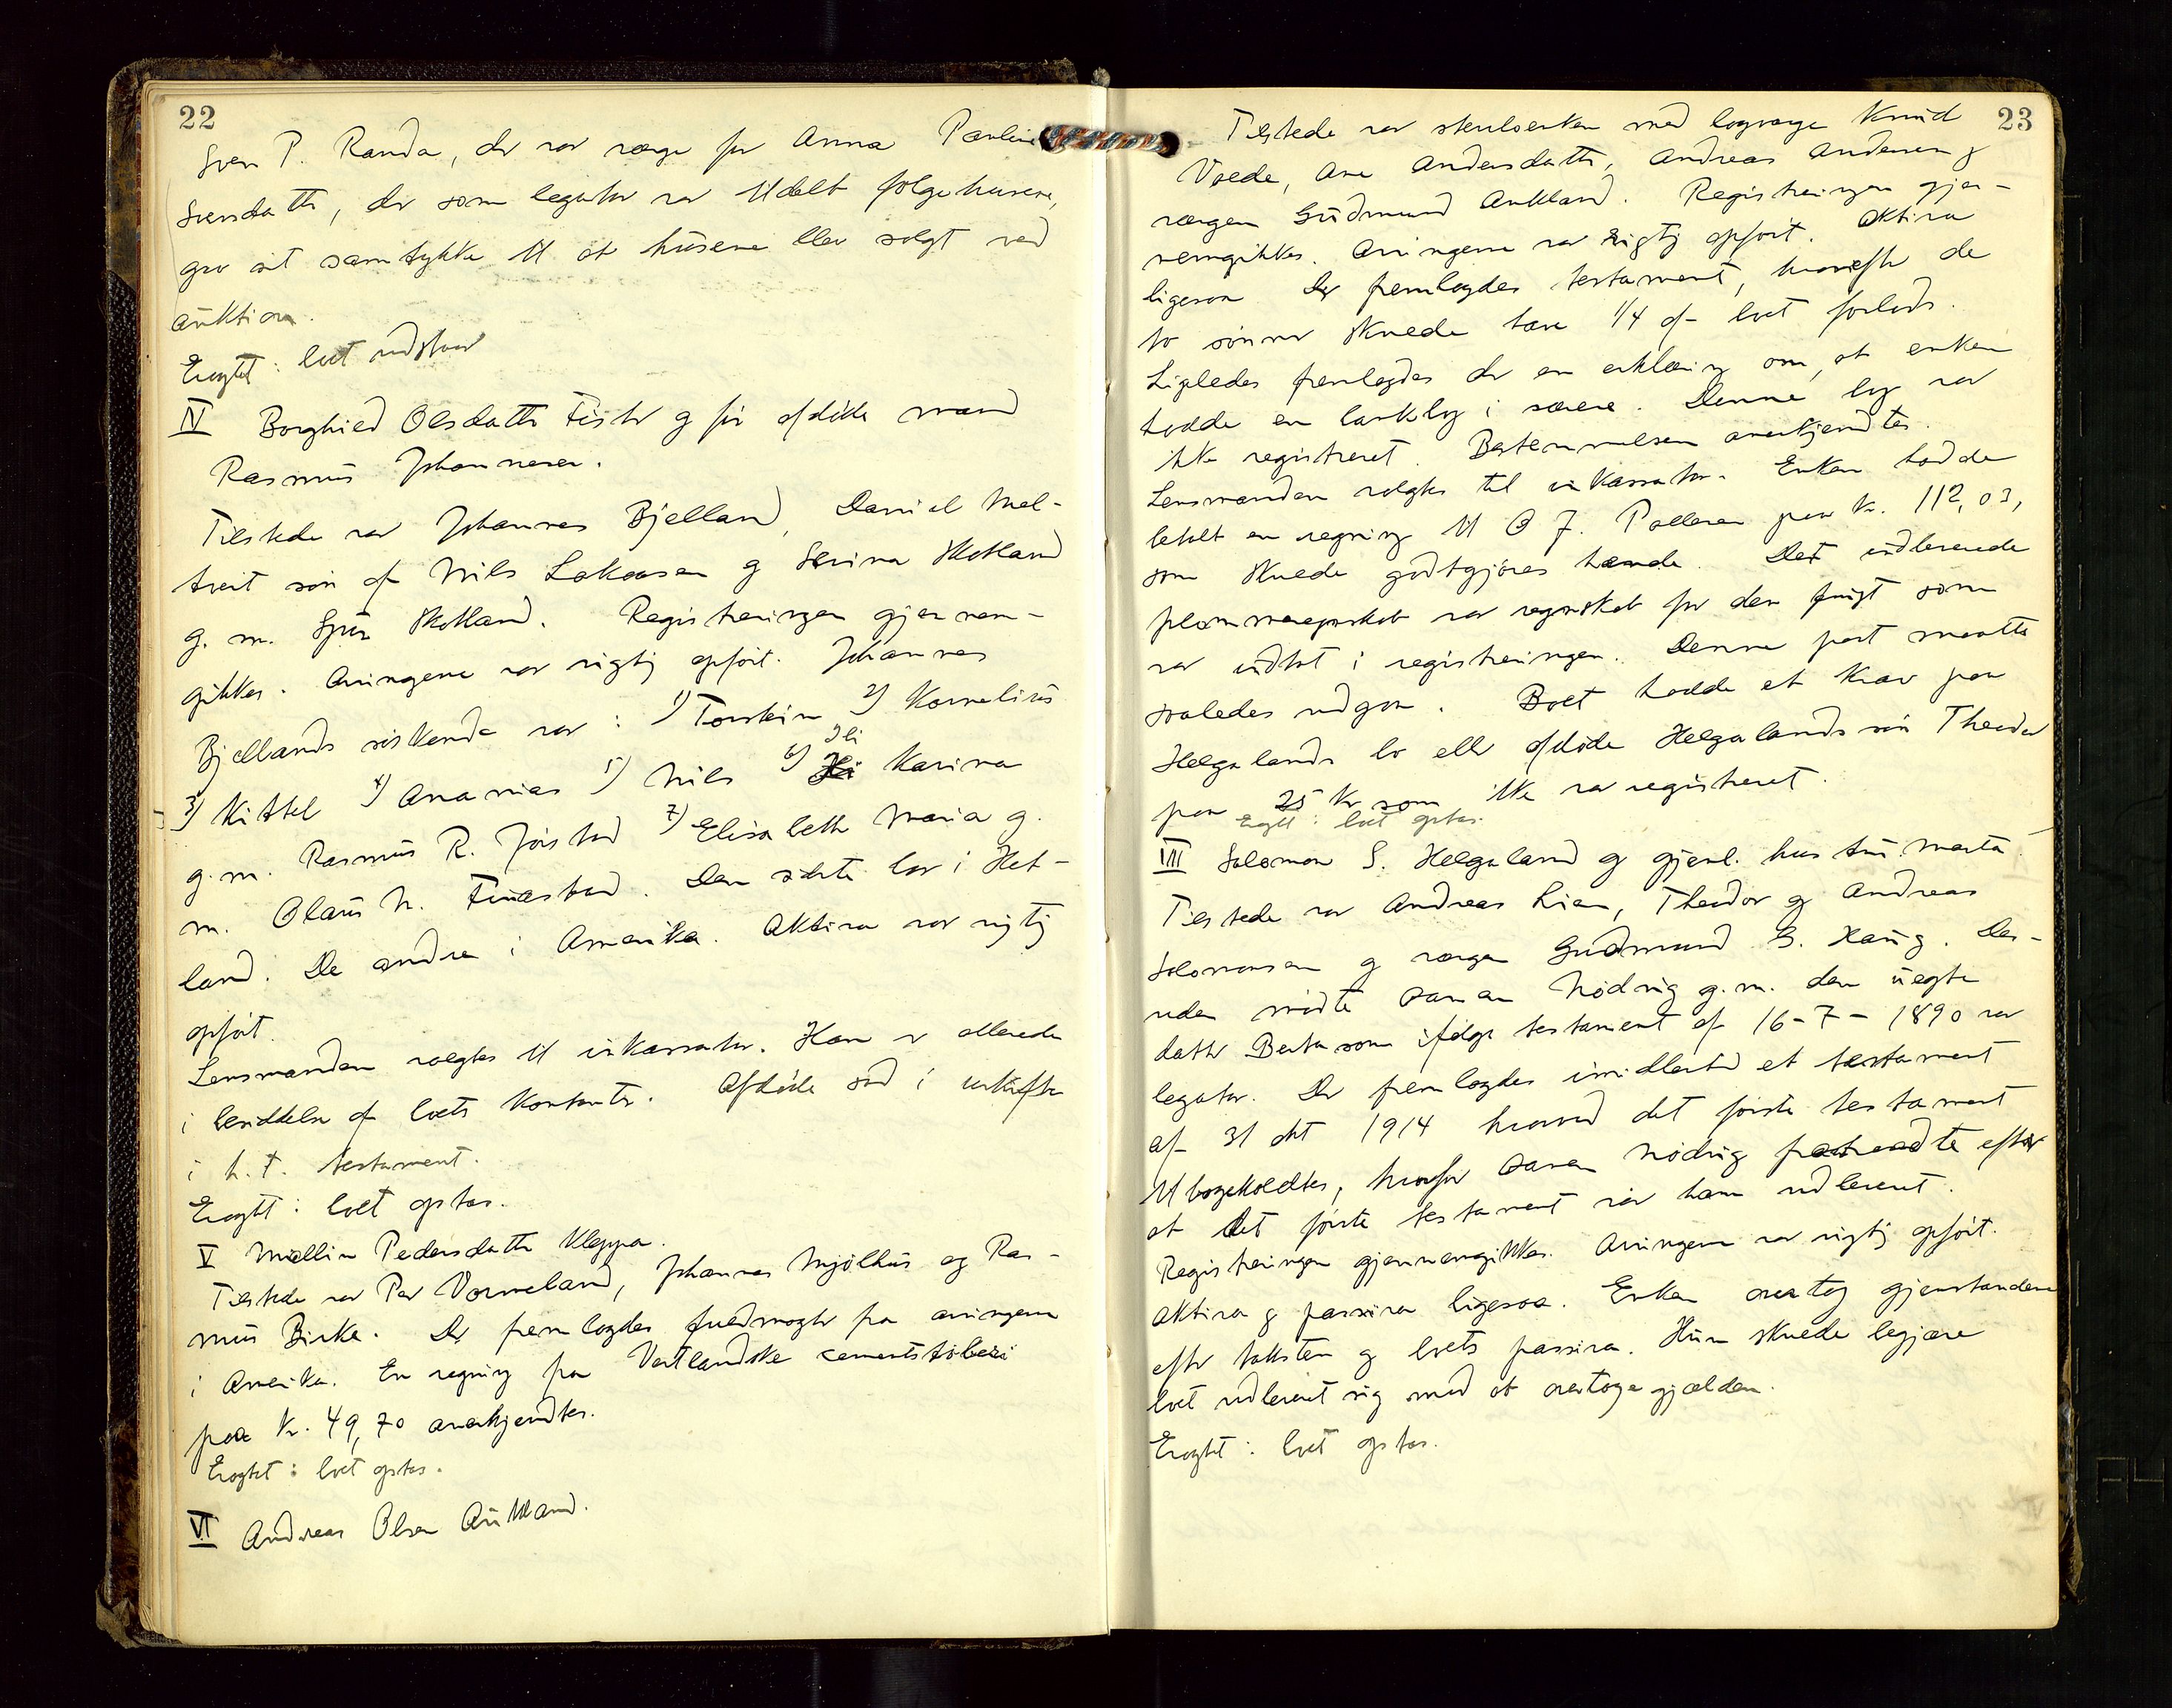 22
Sven P. Randa, der var værge for Anna Pauline
Svensdatter, der som legatar var tildelt følgehusene,
gav sit samtykke til at husene blev solgt ved
auktion.
Eragtet: boet udstaar
IV Borghild Olsdatter Fister og før afdøde mand
Rasmus Johannesen.
Tilstede var Johannes Bjelland, Daniel Mel-
tveit søn af Nils Lakasen og Serina Skotland
g. m. Sjur Skotland. Registreringen gjennem-
gikkes. Arvingene var rigtig opført. Johannes
Bjellands søskende var: 1) Torstein 2) Kornelius
3) Kittel 4) Ananias 5) Nils 6) Ili Karina
g. m. Rasmus R. Jørstad 7) Elisabeth Maria g.
m. Olaus N. Finnestad. Den sidste bor i Het-
land. De andre i Amerika. Aktiva var rigtig
opført.
Lensmanden valgtes til inkassator. Han er allerede
i besiddelse af boets kontanter. Afdøde sad i uskiftet
i h. t. testament.
Eragtet: boet optas.
V Mallin Pedersdatter Kleppa.
Tilstede var Per Vormeland, Johannes Mjølhus og Ras-
mus Birke. Der fremlagdes fuldmagter fra arvingene
i Amerika. En regning fra Vestlandske cementstøberi
paa kr. 49,70 anerkjendtes.
Eragtet: boet optas.
VI Andreas Olsen Aukland.
23
Tilstede var sterboenken med lagværge Knud
Voede, Ane Andersdatter, Andreas Andersen og
værgen Gudmund Aukland. Registreringen gjen-
nemgikkes. Arvingene var rigtig opført. Aktiva
ligesaa Der fremlagdes testament, hvorefter de
to sønner skulde have 1/4 af boet forlods.
Ligeledes fremlagdes der en erklæring om, at enken
hadde en bankbog i særeie. Denne bog var
ikke registreret. Bestemmelsen anerkjendtes.
Lensmanden valgtes til inkassator. Enken hadde
betalt en regning til O J. Pollesen paa kr. 112,03,
som skulde godtgjøres hende. Det indleverede
regnskab var regnskab for den frugt som
var indtat i registreringen. Denne post maatte
saaledes udgaa. Boet hadde et krav paa
Helgalands bo eller afdøde Helgalands søn Theodor
paa 25 kr som ikke var registreret.
Eragtet: boet optas.
VII Solomon S. Helgaland og gjenl. hustru Marta
Tilstede var Andreas Lien, Theodor og Andreas
Solomonsen og værgen Gudmund G. Haug. Des-
uden mødte Nødvig g. m. den uegte
datter Berta som ifølge testament af 16-7-1890 var
legatar. Der fremlagdes imidlertid et testament
af 31 okt 1914 hvorved det første testament
tilbagekaldtes, hvorfor Nødvig fratraadte efter
at det første testament var ham udleveret.
Registreringen gjennemgikkes. Arvingene var rigtig opført.
Aktiva og passiva ligesaa. Enken overtog gjenstandene
efter taksten og boets passiva. Hun skulde begjære
boet udleveret sig med at overtage gjælden.
Eragtet: boet optas.